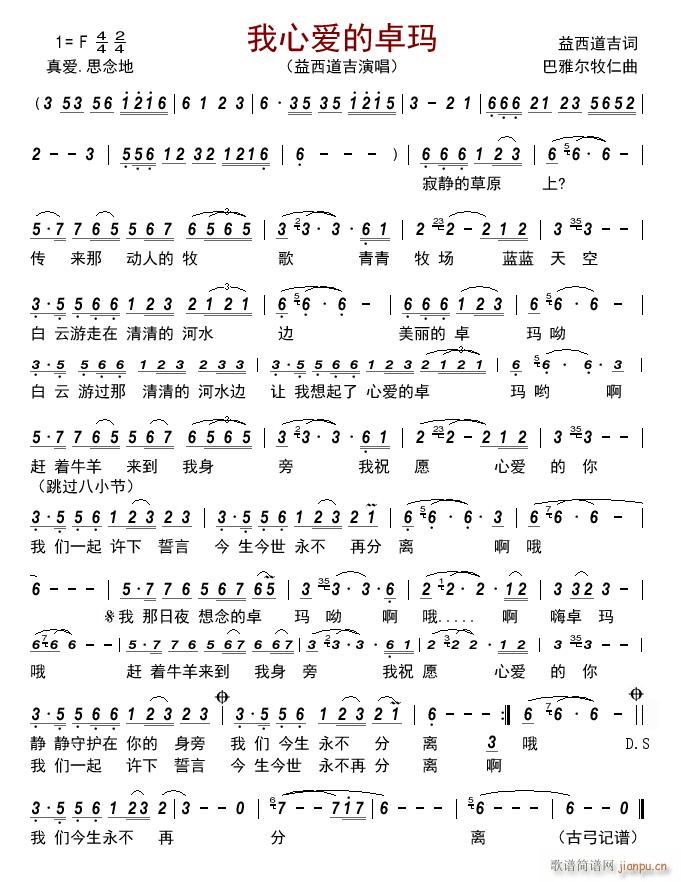 我心爱的卓玛
1= F 4/4 2/4
益西道吉词
真爱.思念地
(益西道吉演唱)
巴雅尔牧仁曲
(3 53 56 1216 | 6 1 2 3 | 6·35 35 1215 | 3 - - 3 | 666 21 23 5652
2 - - 3 | 556 12 32 1216 | 6 - - - ) | 6 6 6 1 2 3 | 6 56· 6 -
寂静的草原 上?
5·7 7 6 5 5 6 7 6 5 6 5 | 3 23· 3· 6 1 | 2 232 - 2 1 2 | 3 353 - -
传 来那 动人的牧 歌 青青 牧场 蓝蓝 天空
3·5 5 5 6 1 2 3 2 1 2 1 | 6 56· 6· | 6 6 6 1 2 3 | 6 56· 6 -
白 云游走在 清清的 河水 边 美丽的卓 玛呦
3·5 5 6 6 1 2 3 2 3 2 3 | 3·5 5 6 6 1 2 3 2 1 2 1 | 6 56· 6· 3
白 云 游过那 清清的 河水边 让 我想起了 心爱的卓 玛 哟 啊
5·7 7 6 5 5 6 7 6 5 6 5 | 3 23· 3· 6 1 | 2 232 - 2 1 2 | 3 353 - -
赶 着牛羊 来到 我身 旁 我祝 愿 心爱 的 你
(跳过八小节)
3·5 5 6 1 2 3 2 3 | 3·5 5 6 1 2 3 2 1 | 6 56· 6· 3 | 6 76· 6 -
我 们一起 许下 誓言 今 生今世 永不 再分 离 啊 哦
6 - - - | 5·7 7 6 5 6 7 6 5 | 3 353· 3· 6 | 2 12· 2· 1 2 | 3 3 2 3 -
𝄋我 那日夜 想念的卓 玛 呦 啊 哦..... 啊 嗨卓 玛
6 76 6 - - | 5·7 7 6 5 5 6 7 6 5 6 5 | 3 23· 3· 6 1 | 2 232 - 2 1 2 | 3 353 - -
哦 赶 着牛羊来到 我身 旁 我祝 愿 心爱 的 你
3·5 5 6 6 1 2 3 2 3 | 3·5 5 6 1 2 3 2 1 | 6 - - - :‖ 6 76· 6 -
静 静守护在 你的 身旁 我 们 今生 永不 分 离 3 哦 D.S
我 们一起 许下 誓言 今 生今世 永不再分 离 啊
3·5 5 6 1 23 2 | 2 - - 3 | 67 - 7 17 | 6 - - - | 6 - - - ‖
我 们今生永不 再 分 离 (古弓记谱)
歌谱简谱网
jianpu.cn